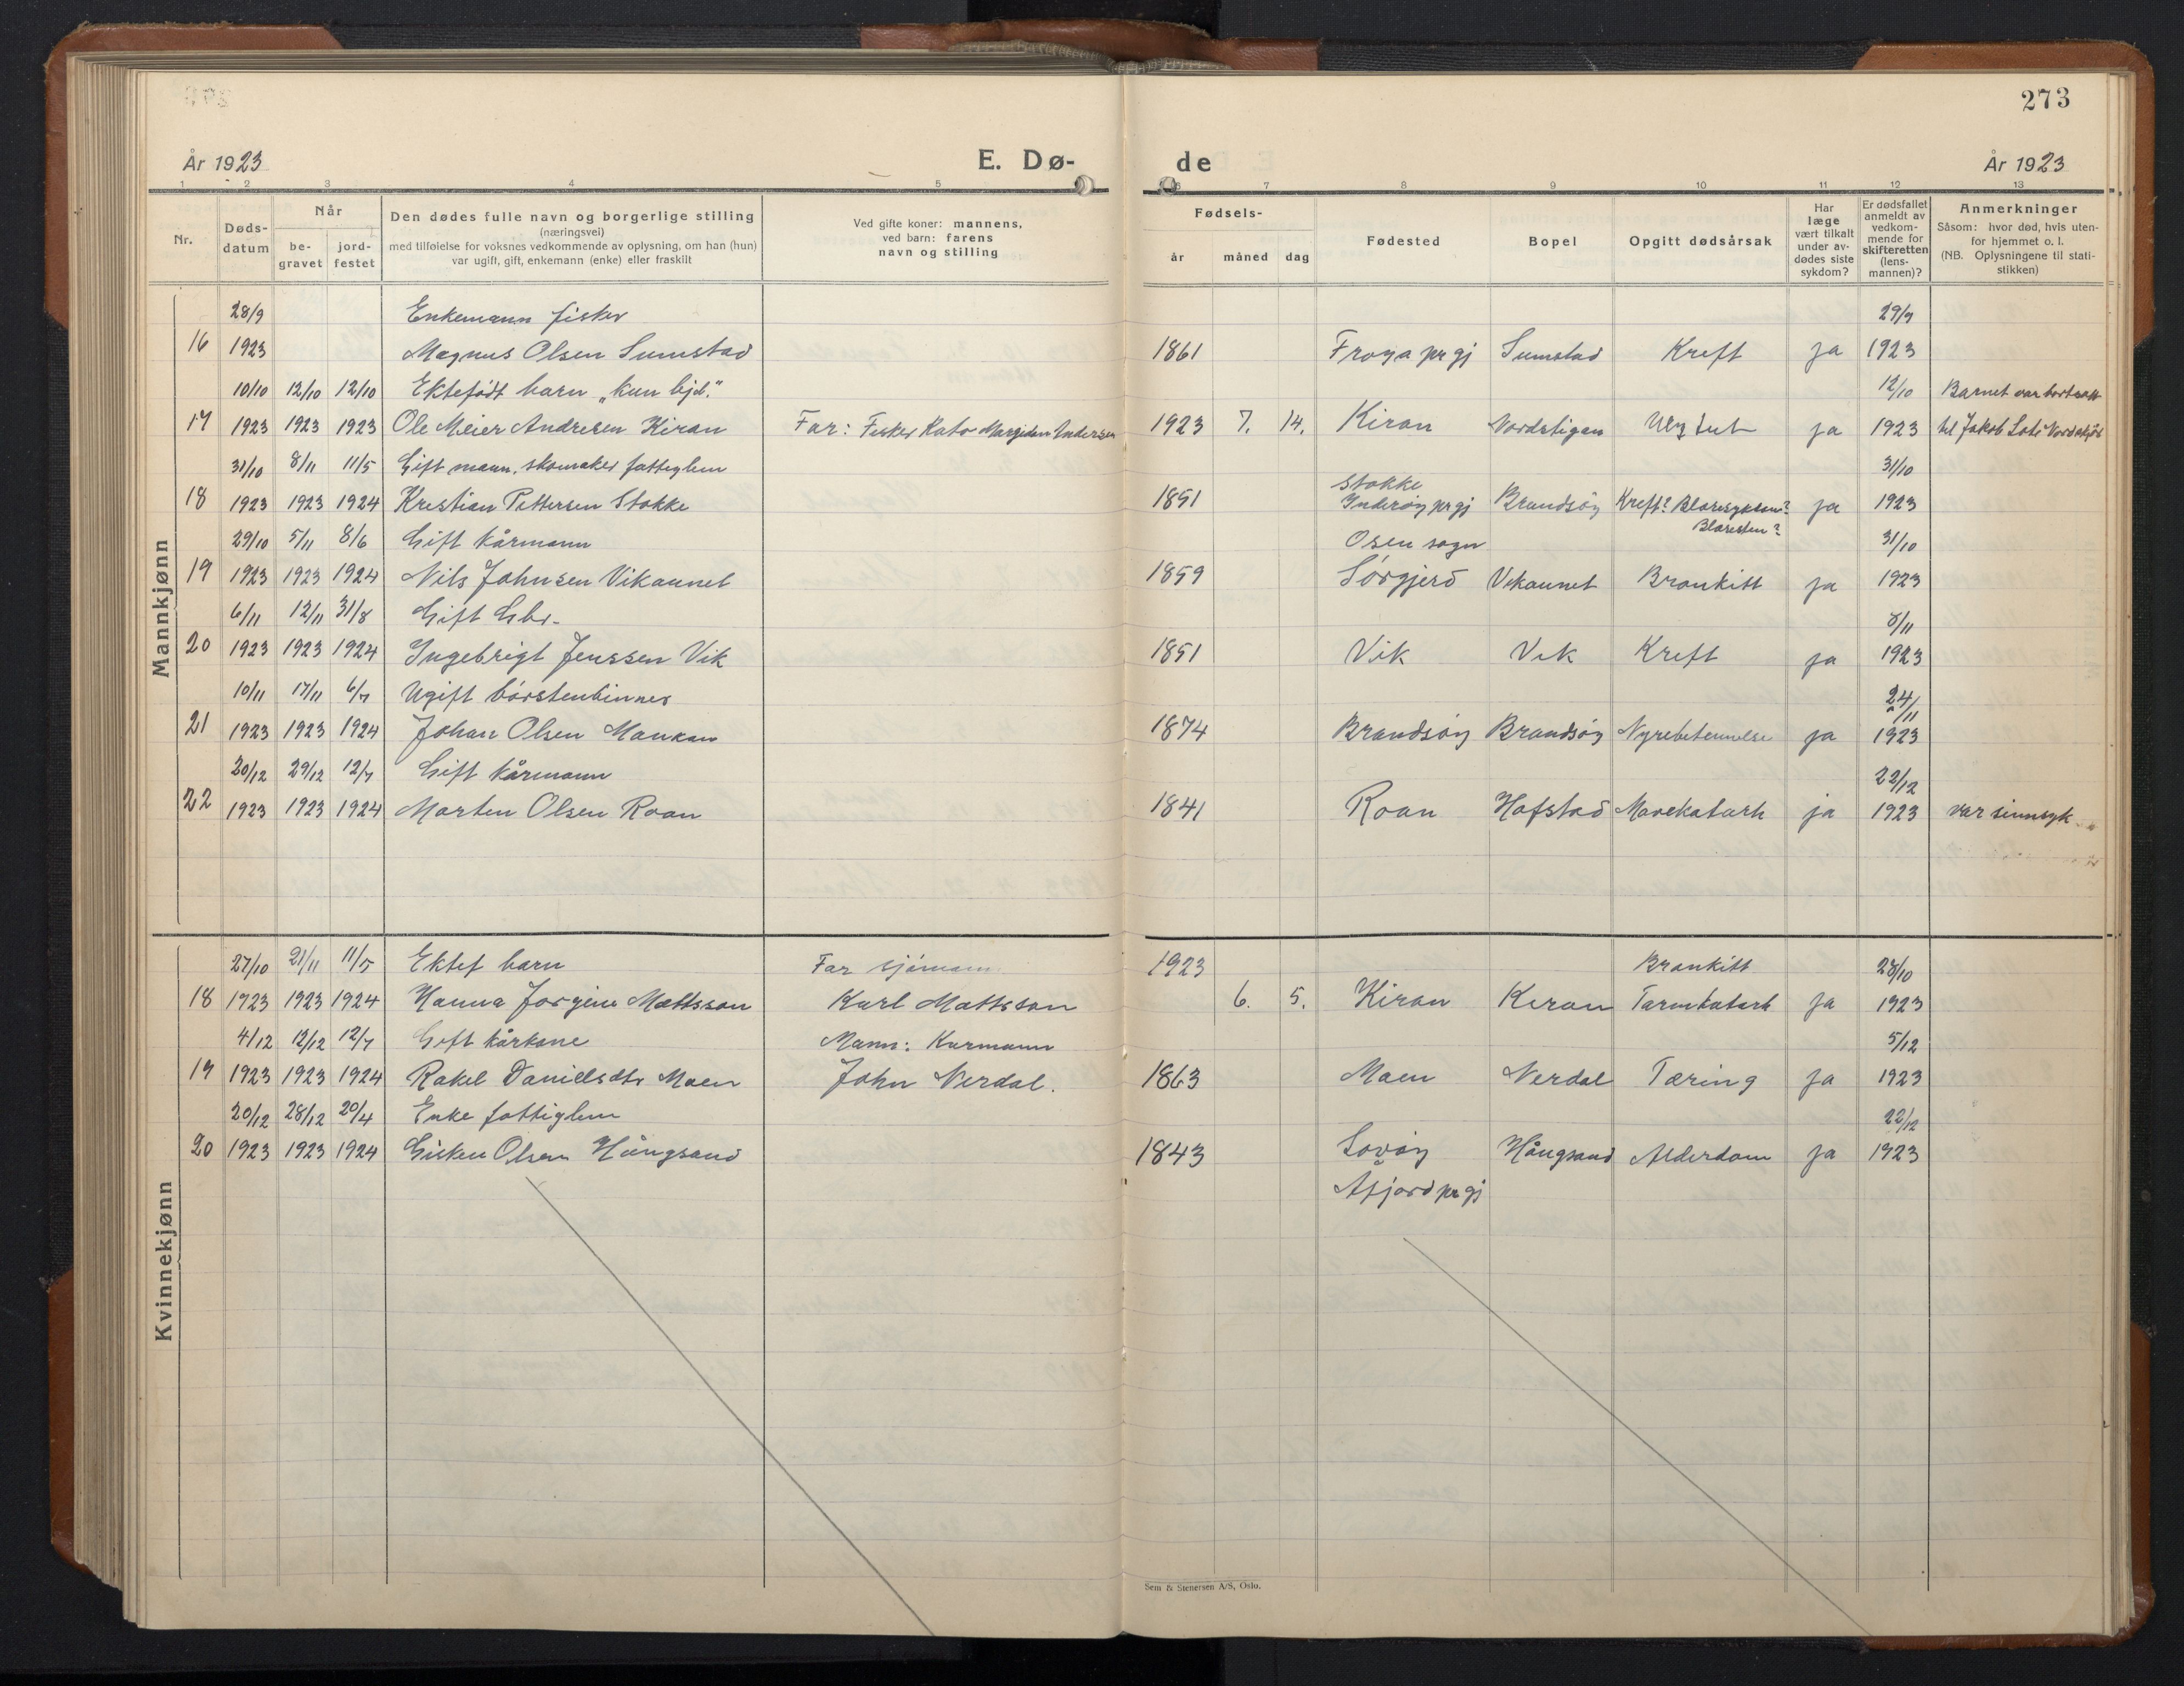 273
År 1923
E. Dø-
de
År 1923
1 2 3 4 5 6 7 8 9 10 11 12 13
Nr.
Døds-
datum
Når
be-
gravet
jord-
festet
Den dødes fulle navn og borgerlige stilling
(næringsvei)
med tilføielse for voksnes vedkommende av oplysning, om han (hun)
var ugift, gift, enkemann (enke) eller fraskilt
Ved gifte koner: mannens,
ved barn: farens
navn og stilling
Fødsels-
år
måned
dag
Fødested
Bopel
Opgitt dødsårsak
Har
læge
vært tilkalt
under av-
dødes siste
sykdom?
Er dødsfallet
anmeldt av
vedkom-
mende for
skifteretten
(lens-
mannen)?
Anmerkninger
Såsom: hvor død, hvis uten-
for hjemmet o. l.
(NB. Oplysningene til stati-
stikken)
Mannkjønn
28/9 Enkemann fisker 29/9
16 1923 Magnus Olsen Sumstad 1861 Frøya prgj Sumstad Kreft ja 1923
10/10 12/10 12/10 Ektefødt barn „kun hjd." 12/10 Barnet var bortsatt
17 1923 1923 1923 Ole Meier Andresen Kiran Far: Fisker Kato Margiden Andersen 1923 7. 14. Kiran Nordstigen ja 1923 til Jakob
31/10 8/11 11/5 Gift mann, skomaker fattiglem 31/10
Stokke
18 1923 1923 1924 Kristian Pettersen Stokke 1851 Inderøy prgj Brandsøy Kreft? Blæresykdom? ja 1923
Blæresten?
29/10 5/11 8/6 Gift kårmann Osen sogn 31/10
19 1923 1923 1924 Nils Johnsen Vikaunet 1859 Sørgjerd Vikaunet Bronkitt ja 1923
6/11 12/11 31/8 Gift Gbr. 8/11
20 1923 1923 1924 Ingebrigt Jenssen Vik 1851 Vik Vik Kreft ja 1923
10/11 17/11 6/7 Ugift børstenbinner 24/11
21 1923 1923 1924 Johan Olsen Mankan 1874 Brandsøy Brandsøy Nyrebetennelse ja 1923
20/12 29/12 12/7 Gift kårmann 22/12
22 1923 1923 1924 Morten Olsen Roan 1841 Roan Hofstad Mavekatarh ja 1923 var sinnsyk
Kvinnekjønn
27/10 21/11 11/5 Ektef barn Far sjømann 1923 Bronkitt 28/10
18 1923 1923 1924 Hanna Jorgine Mattsson Karl Mattsson 6. 5. Kiran Kiran Tarmkatarh ja 1923
4/12 12/12 12/7 Gift kårkone Mann: Kårmann 5/12
19 1923 1923 1924 Rakel Danielsdtr Moen John Nerdal. 1863 Moen Nerdal Tæring ja 1923
20/12 28/12 20/4 Enke fattiglem 22/12
20 1923 1923 1924 Gisken Olsen Hångsand 1843 Lovøy Hångsand Alderdom ja 1923
Åfjord prgj
Sem & Stenersen A/S, Oslo.